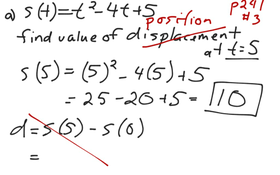 a) s(t)=t²-4t+5 p241
position #3
find value of displacement
at t=5
s(5) = (5)² - 4(5) + 5
= 25 - 20 + 5 = 110
d = s(5) - s(0)
=